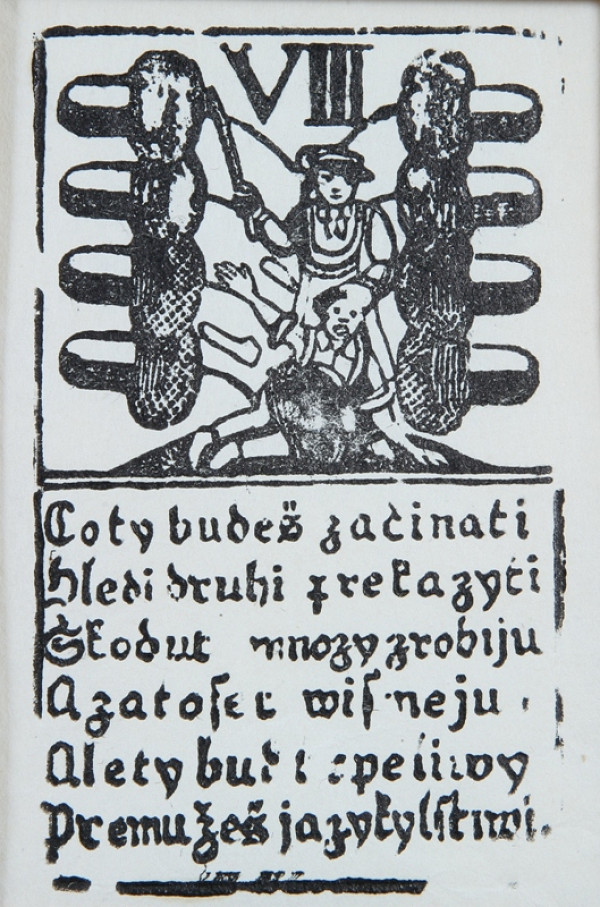 VIII
Coty budeš začinati
hledi druhi prekazyti
Škodut mnozy zrobiju
A zatoset wisneju.
Alety bud
Premužeš jazyky lstiwi.